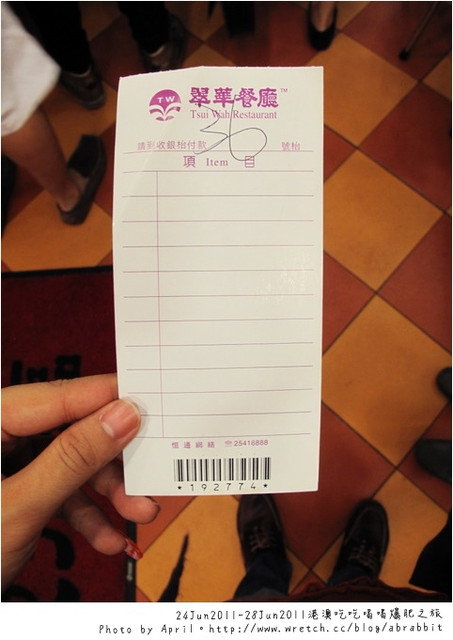 TW 翠華餐廳™
Tsui Wah Restaurant
36
請到收銀枱付款 號枱
項 Item 目
恒通網絡 ☏25416888
*192774*
24Jun2011-28Jun2011港澳吃吃喝喝爆肥之旅
Photo by April。http://www.wretch.cc/blog/abrabbit